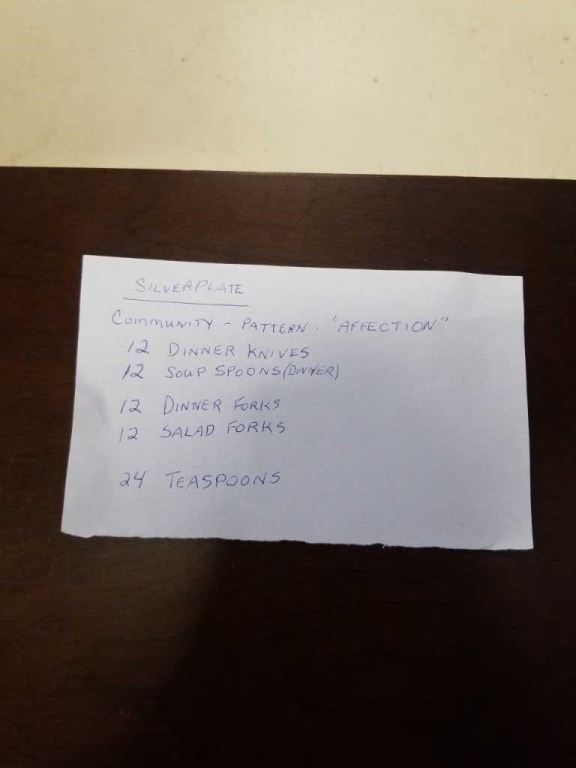 SILVERPLATE
COMMUNITY - PATTERN. "AFFECTION"
12 DINNER KNIVES
12 SOUP SPOONS (DINNER)
12 DINNER FORKS
12 SALAD FORKS
24 TEASPOONS